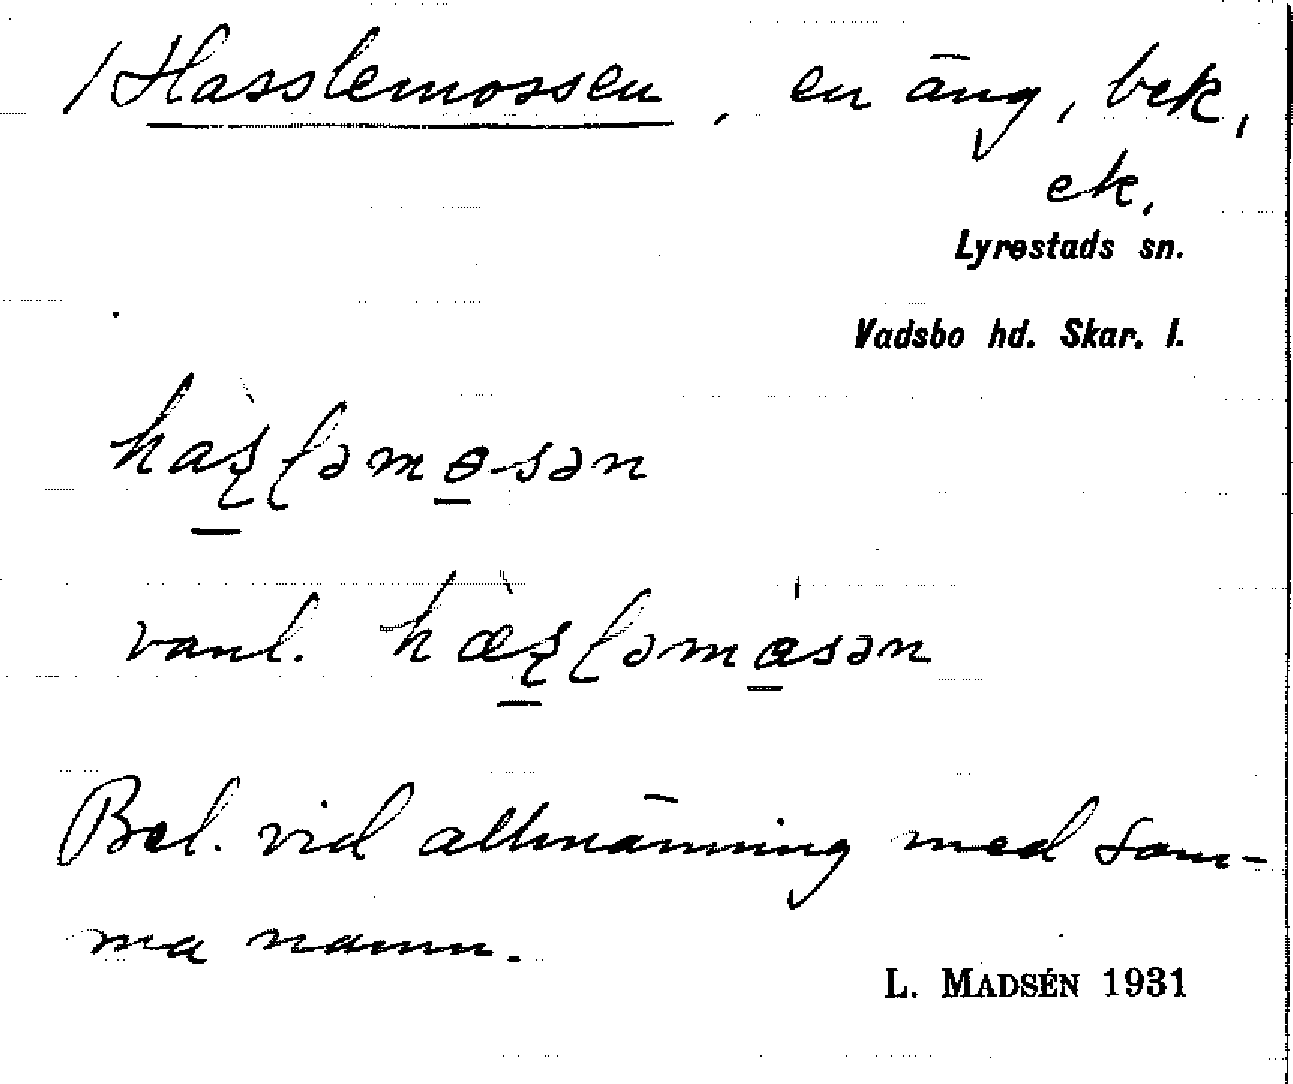 / Hasslemossen, en äng, bek.
ek.
Lyrestads sn.
Vadsbo hd. Skar. l.
vanl.
Bel. vid allmänning med sam-
ma namn.
L. MADSÉN 1931